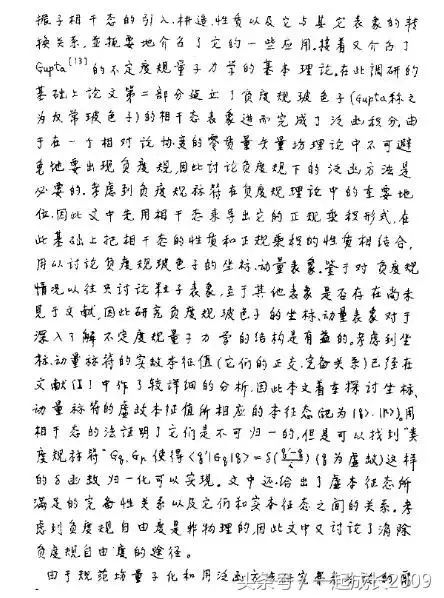 振子相干态的引入,构造,性质以及它与其它表象的转
换关系,并扼要地介绍了它的一些应用.接着又介绍了
Gupta[13]的不定度规量子力学的基本理论.在此调研的
基础上论文第二部分建立了负度规玻色子(Gupta称之
为反常玻色子)的相干态表象进而完成了泛函积分.由
于在一个相对论协变的零质量矢量场理论中不可避
免地要出现负度规,因此讨论负度规下的泛函方法是
必要的.考虑到负度规标符在负度规理论中的重要地
位,因此文中先用相干态来导出它的正规乘积形式.在
此基础上把相干态的性质和正规乘积的性质相结合,
用以讨论负度规玻色子的坐标、动量表象.鉴于对负度规
情况以往只讨论粒子表象,至于其他表象是否存在尚未
见于文献,因此研究负度规玻色子的坐标、动量表象对于
深入了解不定度规量子力学的结构是有益的.考虑到坐
标、动量标符的实数本征值(它们的正交,完备关系)已经在
文献值1中作了较详细的分析,因此本文着重探讨坐标、
动量标符的虚数本征值所相应的本征态(记为|g>,|h>),用
相干态的方法证明了它们是不可归一的,但是可以找到"类
度规标符"Gg,Gh使得<g'|Gg|g>=δ((g'-g)/i)(g为虚数)这样
的δ函数归一化可以实现.文中还给出了虚本征态所
满足的完备性关系以及它们和实本征态之间的关系.考
虑到负度规自由度是非物理的,因此文中又讨论了消除
负度规自由度的途径.
由于规范场量子化和用泛函方法
头条号/一起成长2009